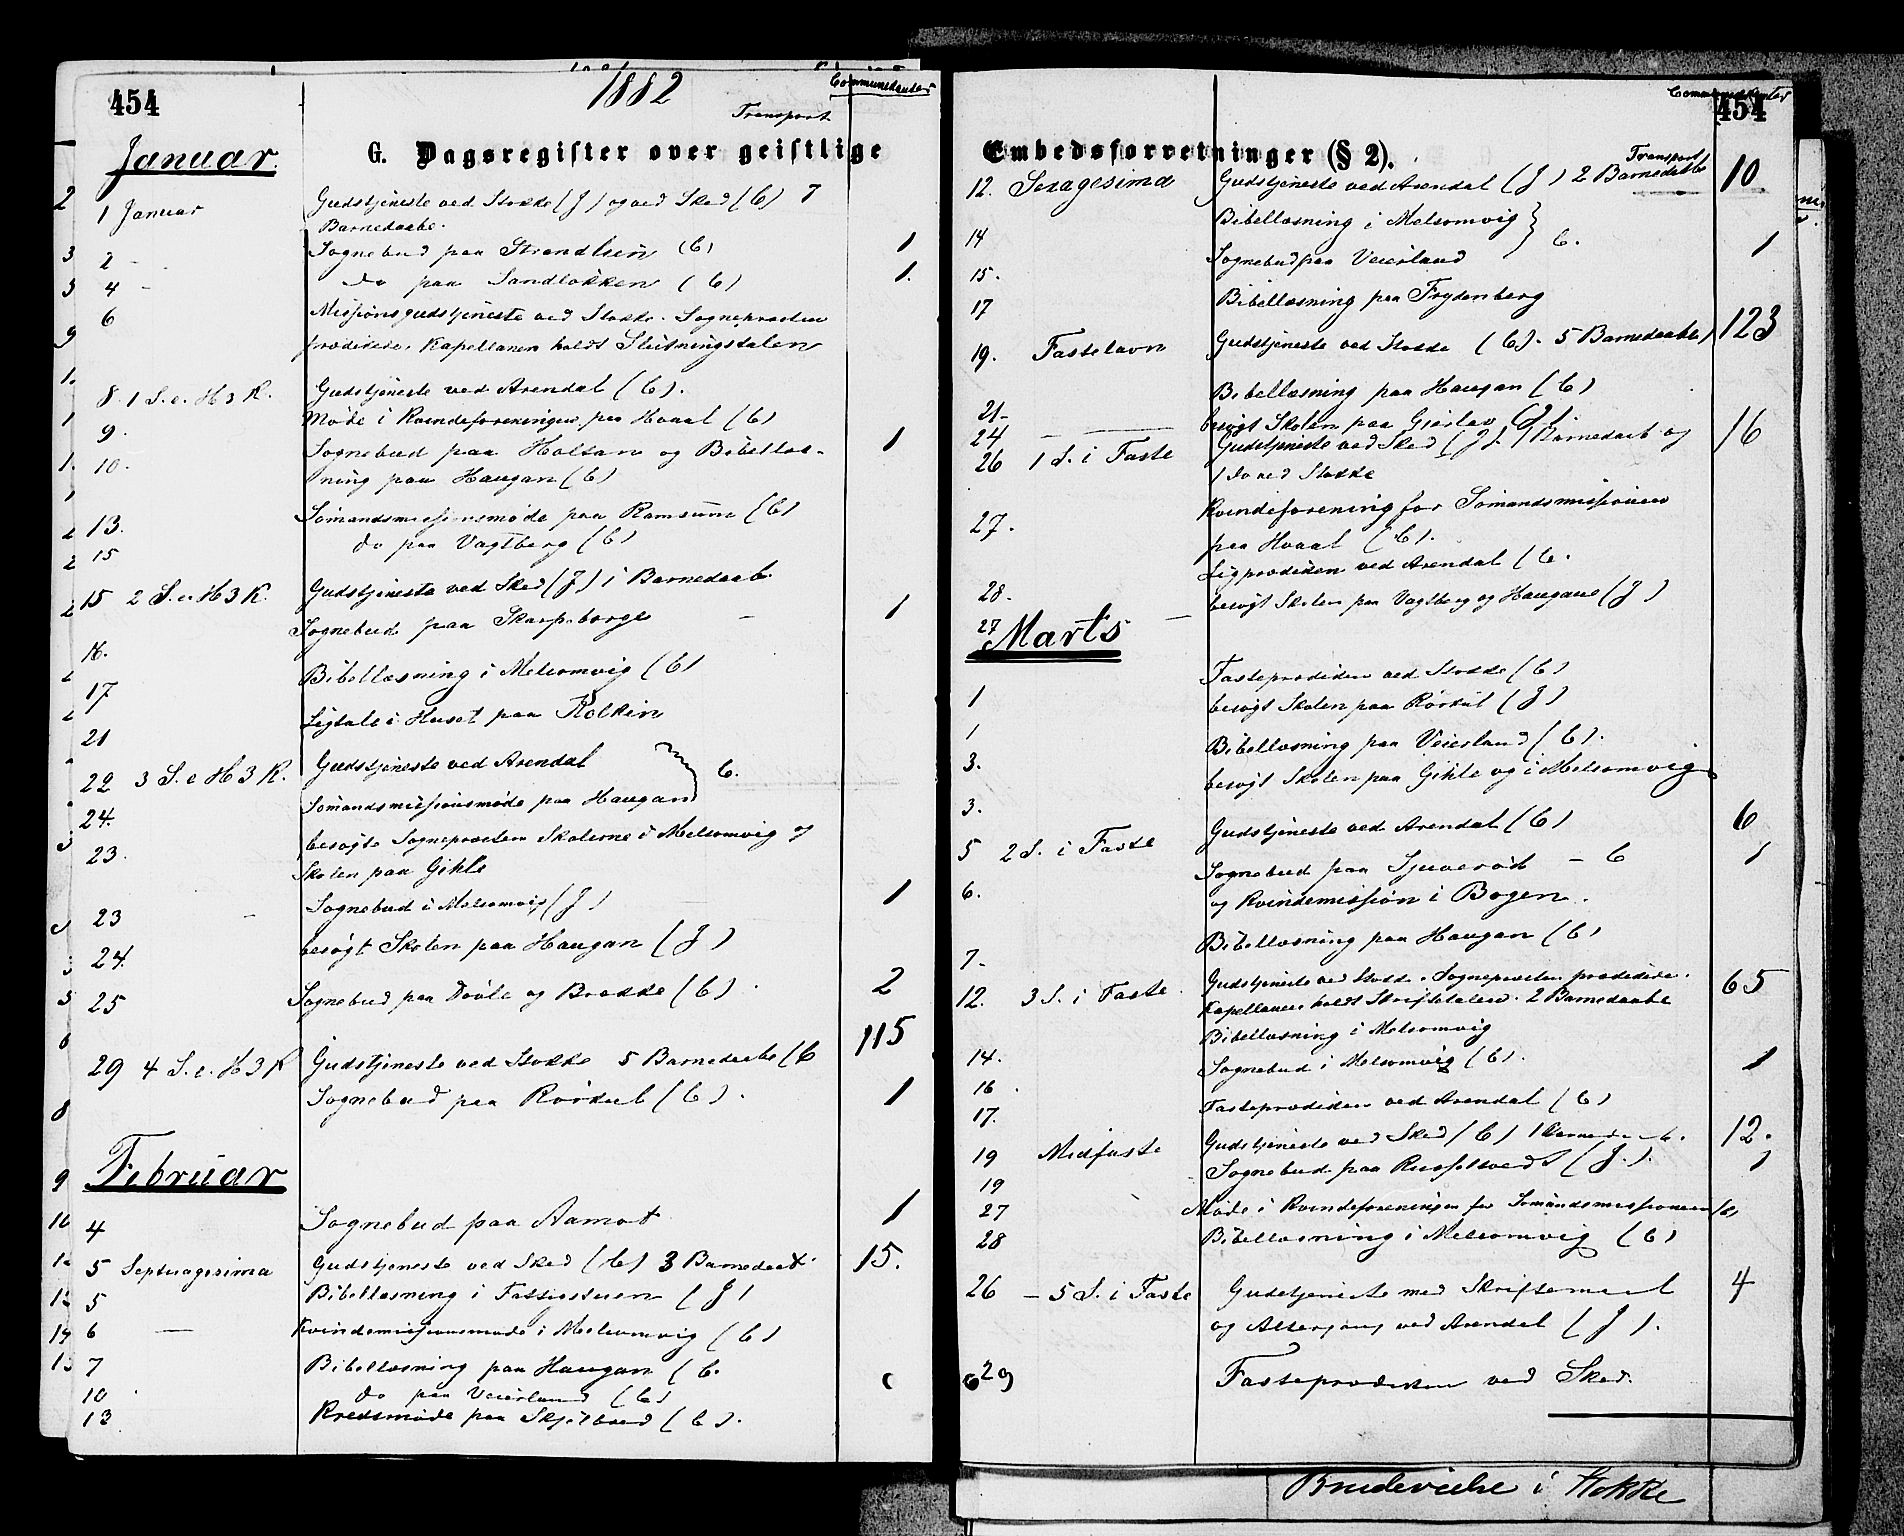 454
1882
Communikanter
Transport
Januar.
G. Dagsregister over geistlige
1 Januar Gudstjeneste ved Stokke (J) og ved Skee (C) 7
Barnedaabe.
2 - - Sognebud paa (C) 1
3 4 - do paa Sandløkken (C) 1.
6 Missionsgudstjeneste ved Stokke. Sognepræsten
prædikede. Kapellanen holdt Slutningstalen
8. 1 S. e. H 3 K. Gudstjeneste ved Arendal (C).
9. Møde i Kvindeforeningen paa Hvaal (C)
10. Sognebud paa Holtan og Bibellæs- 1
ning paa Haugan (C)
13. Sømandsmissionsmøde paa Ramsum (C)
15 do paa Vagtberg (C)
15 2 S. e H 3 K. Gudstjeneste ved Skee (J) 1 Barnedaab.
16. Sognebud paa - 1
17 Bibellæsning i Melsomvig (C)
21 Ligtale i Huset paa
22 3 S. e H 3 K. Gudstjeneste ved Arendal C.
24. Sømandsmissionsmøde paa Haugan
23. besøgte Sognepræsten Skolerne i Melsomvig og
Skolen paa Gihle
23 - Sognebud i Melsomvig (J) 1
24. besøgt Skolen paa Haugan (J)
25 Sognebud paa og Brekke (C). 2
29 4 S. e. H 3 K Gudstjeneste ved Stokke 5 Barnedaabe (C 115
Sognebud paa Rørkol (C). 1
Februar
4 Sognebud paa Aamot 1
5 Septuagesima Gudstjeneste ved Skee (C) 3 Barnedaab. 15.
5 Bibellæsning i (J)
6 — Kvindemissionsmøde i Melsomvig (C)
7 Bibellæsning paa Haugan (C.
10 do paa Veierland (C)
13 Kredsmøde paa (C).
Communikanter
454
Embedsforretninger (§ 2).
Transport
12. Sexagesima Gudstjeneste ved Arendal (J) 2 Barnedaabe 10
14 Bibellæsning i Melsomvig
15. Sognebud paa Veierland C. 1
17 Bibellæsning paa Frydenberg
19. Fastelavn Gudstjeneste ved Stokke (C). 5 Barnedaabe) 123
21- Bibellæsning paa Haugan (C)
24 besøgt Skolen paa
26 1 S. i Faste Gudstjeneste ved Skee (J) 1 Barnedaab og 16
1 do ved Stokke
27. Kvindeforening for Sømandsmissionen
paa Hvaal (C).
28. Ligprædiken ved Arendal (C.
27 besøgt Skolen paa Vagtberg og Haugane (J)
Marts
1 Fasteprædiken ved Stokke (C)
1 besøgt Skolen paa Rørkol (J)
3. Bibellæsning paa Veierland (C).
3. besøgt Skolen paa Gihle og i Melsomvig
5 2 S. i Faste Gudstjeneste ved Arendal (C) 6
6. Sognebud paa Sjuerød - C 1
og Kvindemission i Bogen.
7- Bibellæsning paa Haugan (C)
12. 3 S. i Faste Gudstjeneste ved Stokke. Sognepræsten prædikede. 65
Kapellanen holdt Skriftetalen. 2 Barnedaabe
14. Bibellæsning i Melsomvig
16. Sognebud i Melsomvig (C). 1
17. Fasteprædiken ved Arendal (C)
19 Midfaste Gudstjeneste ved Skee (C) 1 Barnedaab. 12.
19 Sognebud paa (J.). 1
27 Møde i Kvindeforeningen for Sømandsmissionen (C)
28 Bibellæsning i Melsomvig (C)
26 - 5 S. i Faste Gudstjeneste med Skriftemaal 4
og Altergang ved Arendal (J).
29 Fasteprædiken ved Skee.
i Stokke